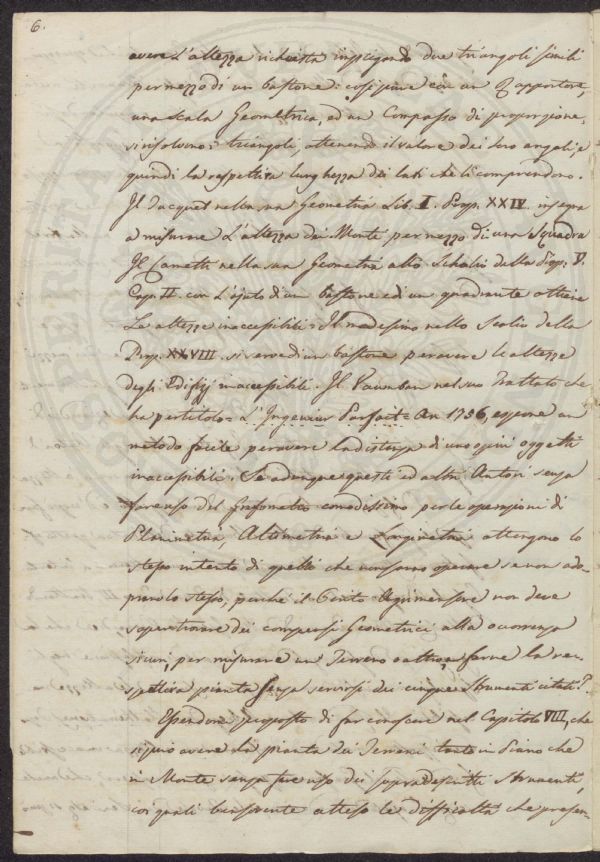 6.
avere l'altezza richiesta impiegando due triangoli simili
per mezzo di un bastone: così pure con un Rapportore,
una scala Geometrica, ed un Compasso di proporzione,
si risolvono i triangoli, ottenendo il valore dei loro angoli, e
quindi la rispettiva lunghezza dei lati che li comprendono.
Il Tacquet nella sua Geometria Lib. I. Prop. XXIV insegna
a misurare l'altezza dei Monti per mezzo di una Squadra
Il nella sua Geometria allo Scholio della Prop. V.
Cap. II. con l'ajuto di un bastone ed un quadrante ottiene
le altezze inaccessibili: Il medesimo nello Scolio della
Prop. XXVIII. si serve di un bastone per avere le altezze
degli Edifizj inaccessibili. Il nel suo Trattato che
ha per titolo = L'Ingenieur Parfait = An 1736, espone un
metodo facile per avere la distanza di uno o più oggetti
inaccessibili. Se adunque questi ed altri Autori senza
far uso del comodissimo per le operazioni di
Planimetria, Altimetria e Longimetria ottengono lo
stesso intento di quelli che non sanno operare se non ado-
prano lo stesso, perché il Perito Agrimensore non deve
saper trovare dei compensi Geometrici alla occorrenza
sicuri, per misurare un Terreno o altro, e farne la res-
pettiva pianta senza servirsi dei cinque Strumenti citati?
Essendomi proposto di far conoscere nel Capitolo VIII, che
si può avere la pianta dei Terreni tanto in Piano che
in Monte senza fare uso dei sopradescritti Strumenti,
coi quali bensovente atteso le difficoltà che presen-